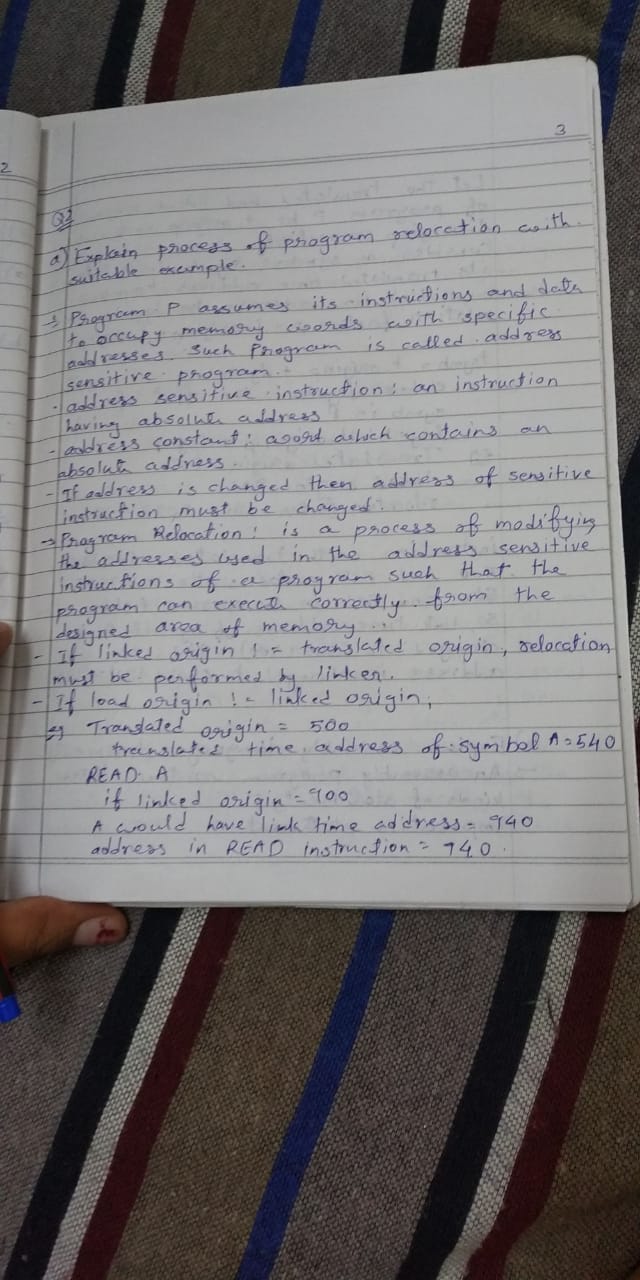 3
2
Q2
a) Explain process of program relocation with
suitable example.
→ Program P assumes its instructions and data
to occupy memory words with specific
addresses. Such Program is called address
sensitive program.
- address sensitive instruction: an instruction
having absolute address
- address constant: a word which contains an
absolute address.
- If address is changed then address of sensitive
instruction must be changed.
→ Program Relocation: is a process of modifying
the addresses used in the address sensitive
instructions of a program such that the
program can execute correctly from the
designed area of memory.
- If linked origin != translated origin, relocation
must be performed by linker.
- If load origin != linked origin,
eg Translated origin = 500
translated time address of symbol A = 540
READ A
if linked origin = 900
A would have link time address = 940
address in READ instruction = 940.